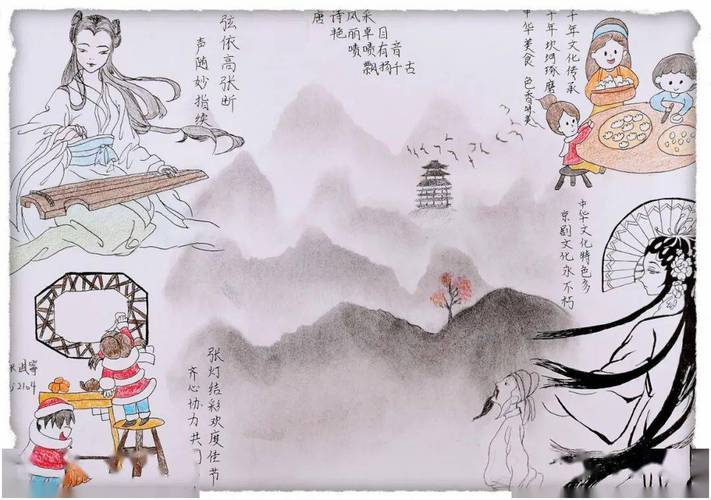 弦依高张断
声随妙指续
唐诗风采
艳丽夺目
啧啧有音
飘扬千古
千年文化传承
千年坎坷琢磨
中华美食 色香味美
中华文化特色多
京剧文化永不朽
张灯结彩欢度佳节
齐心协力共
2104